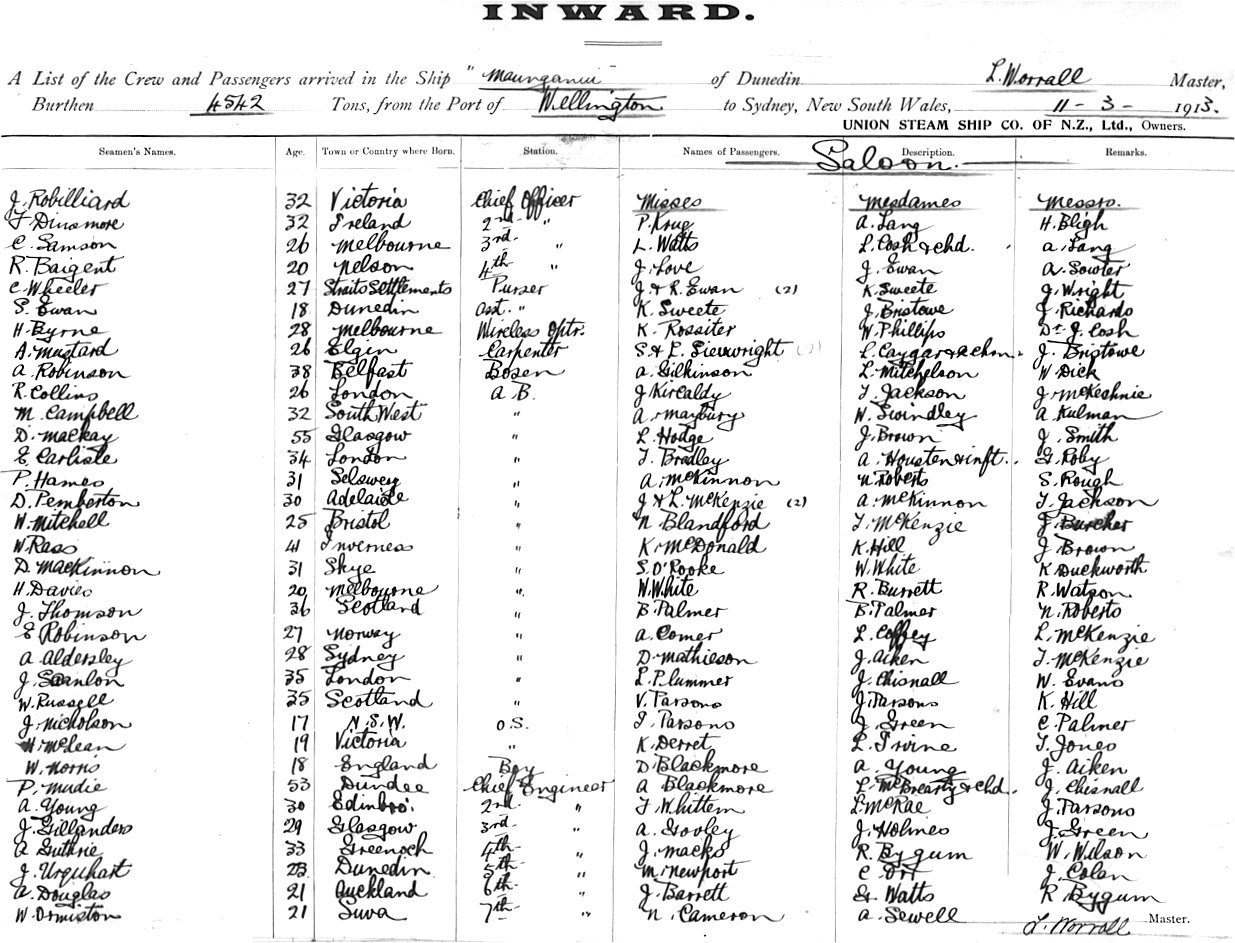 INWARD.
A List of the Crew and Passengers arrived in the Ship "Maunganui" of Dunedin L. Worrall Master,
Burthen 4542 Tons, from the Port of Wellington to Sydney, New South Wales, 11 - 3 - 1913.
UNION STEAM SHIP CO. OF N.Z., Ltd., Owners.
Seamen's Names. Age. Town or Country where Born. Station. Names of Passengers. Description. Remarks.
Saloon.
J. Robilliard 32 Victoria Chief Officer Misses Mesdames Messrs.
T Dinsmore 32 Ireland 2nd " P. Krug A. Lang H. Bligh
C. Samson 26 Melbourne 3rd " L. Watts L. Cosh & chd. A. Lang
R. Baigent 20 Nelson 4th " J. Love J. Ewan A. Sowter
C. Wheeler 27 Straits Settlements Purser J & R. Ewan (2) K. Sweete J. Wright
S. Ewan 18 Dunedin asst. " K. Sweete J. Bristowe J. Richards
H. Byrne 28 Melbourne Wireless Optr. K. Rossiter W. Phillips Dr. J. Cosh
A. Mustard 26 Elgin Carpenter S. & L. Sievwright (2) L. J. Bristowe
A. Robinson 38 Belfast Bosen A. Gilkinson L. Mitchelson W Dick
R. Collins 26 London A.B. J Kircaldy T. Jackson J. McKechnie
M. Campbell 32 South West " A. Maybury W. Swindley A Kulman
D. Mackay 55 Glasgow " L. Hodge J. Brown J. Smith
E Carlisle 34 London " T. Bradley A. Housten & inft. G. Roby
P. Hames 31 Selswey " A. McKinnon N. Roberts S. Rough
D. Pemberton 30 Adelaide " J & L. McKenzie (2) A. McKinnon T. Jackson
W. Mitchell 25 Bristol " N Blandford T. McKenzie J. Burcher
W. Rass 41 Inverness " K. McDonald K. Hill J Brown
D. MacKinnon 31 Skye " S. O'Rooke W. White K Duckworth
H. Davies 20 Melbourne " W. White R. Burrett R. Watson
J. Thomson 36 Scotland " B. Palmer B. Palmer N. Roberts
E Robinson 27 Norway " A. Comer L. Coffey L. McKenzie
A Aldersley 28 Sydney " D. Mathieson J. Aiken T. McKenzie
J. Scanlon 35 London " L. Plummer J. Chisnall W. Evans
W. Russell 35 Scotland " V. Parsons J. Parsons K. Hill
J. Nicholson 17 N.S.W. O.S. I. Parsons J. Green C. Palmer
H. McLean 19 Victoria " K. Derret L. Irvine T. Jones
W. Norris 18 England Boy D. Blackmore A. Young J. Aiken
P. Mudie 53 Dundee Chief Engineer A Blackmore L. McBrearty & chd. J. Chisnall
A. Young 30 Edinboro'. 2nd " T. Whittem L. McRae J. Parsons
J. Gillanders 29 Glasgow 3rd " A. Gooley J. Holmes J. Green
A Guthrie 33 Greenock 4th " J. Macks R. Bygum W. Wilson
J. Urquhart 23 Dunedin 5th " M. Newport C. Orr J. Colan
A. Douglas 21 Auckland 6th " J. Barrett G. Watts R Bygum
W. Ormiston 21 Suva 7th " N. Cameron A. Sewell
L. Worrall Master.